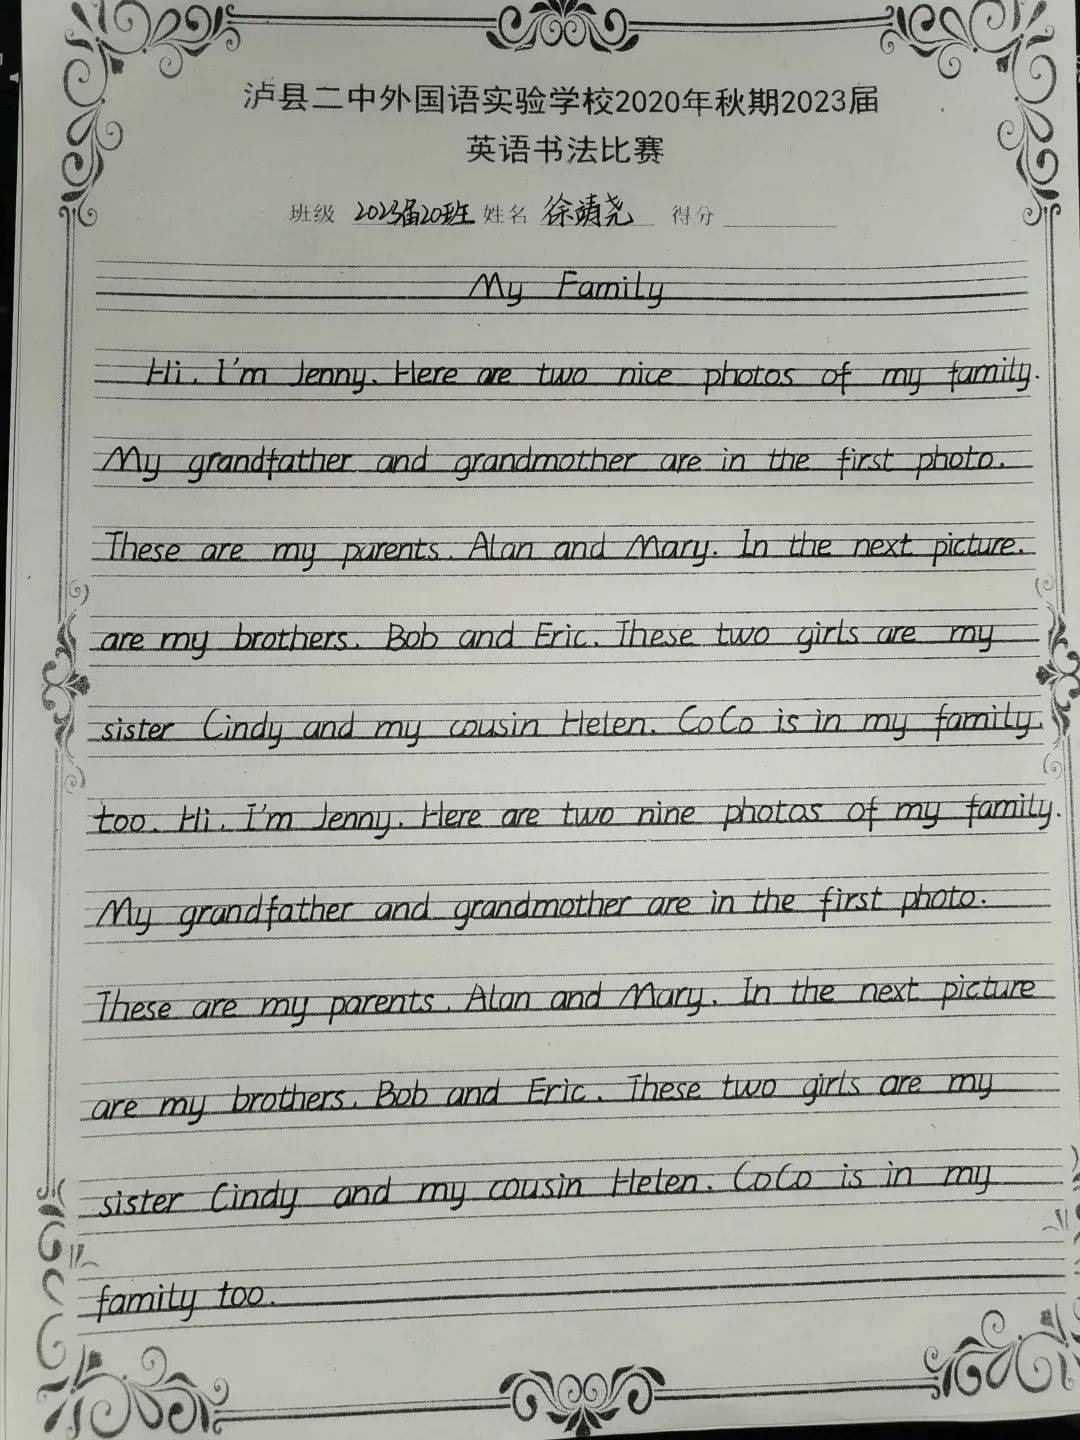 泸县二中外国语实验学校2020年秋期2023届
英语书法比赛
班级 2023届20班 姓名 徐靖尧 得分
My Family
Hi. I'm Jenny. Here are two nice photos of my family.
My grandfather and grandmother are in the first photo.
These are my parents. Alan and Mary. In the next picture.
are my brothers. Bob and Eric. These two girls are my
sister Cindy and my cousin Helen. CoCo is in my family.
too. Hi. I'm Jenny. Here are two nine photos of my family.
My grandfather and grandmother are in the first photo.
These are my parents. Alan and Mary. In the next picture
are my brothers. Bob and Eric. These two girls are my
sister Cindy and my cousin Helen. CoCo is in my
family too.